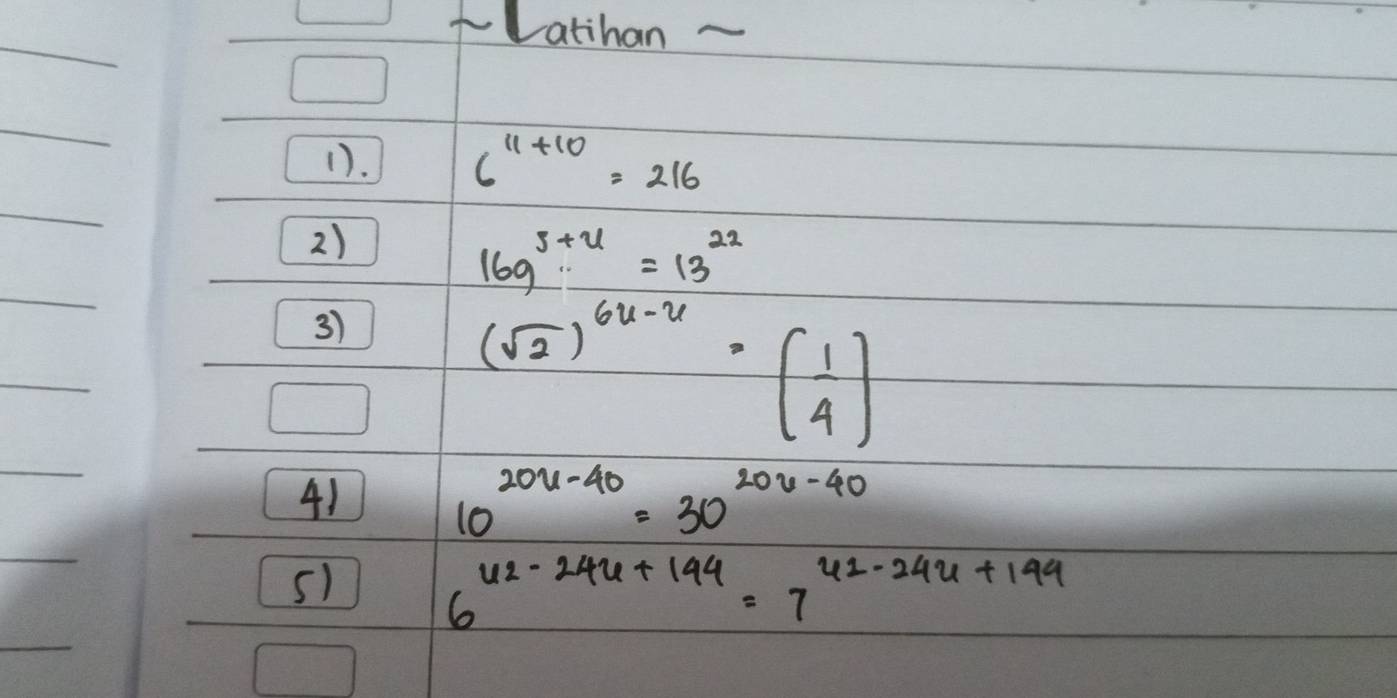 ~ Latihan ~
1). 6^{11+10} = 216
2) 169^{5+x} = 13^{22}
3) (√2)^{6x-x} = (1/4)
4) 10^{20x-40} = 30^{20x-40}
5) 6^{x2-24x+144} = 7^{x2-24x+144}